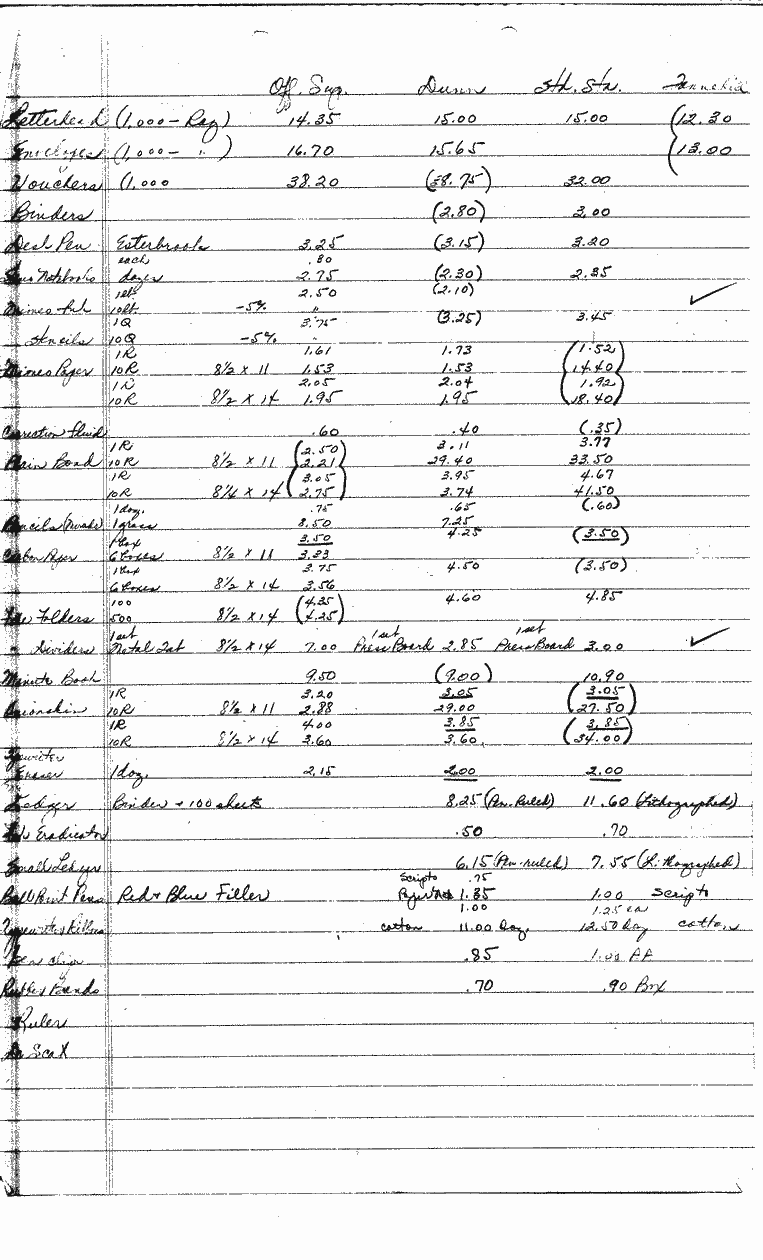 Off. Sup. Dunn Std. Sta.
Letterhead (1,000 - Rag) 14.35 15.00 15.00 (12.30
Envelopes (1,000 - " ) 16.70 15.65 (13.00
Vouchers (1,000 38.20 ( 8.75) 32.00
Binders (2.80) 3.00
Desk Pen Esterbrook 3.25 (3.15) 3.20
each .80
Notebooks dozen 2.75 (2.30) 2.35
1 lb. 2.50 (2.10)
Mimeo Ink 10 lb. -5% " ✓
1Q 3.75 (3.25) 3.45
Stencils 10Q -5% "
1R 1.61 1.73 (1.52)
Mimeo Paper 10R 8½ x 11 1.53 1.53 (14.40)
1R 2.05 2.04 (1.92)
10R 8½ x 14 1.95 1.95 (18.40)
Correction Fluid .60 .40 (.35)
1R (2.50) 3.11 3.77
Plain Bond 10R 8½ x 11 (2.21) 29.40 33.50
1R (3.05) 3.95 4.67
10R 8½ x 14 (2.75) 3.74 41.50
1 doz. .75 .65 (.60)
Pencils 1 gross 8.50 7.25
1 box 3.50 4.25 (3.50)
Carbon Paper 6 boxes 8½ x 11 3.33
1 box 3.75 4.50 (3.50)
6 boxes 8½ x 14 3.56
100 (4.35) 4.60 4.85
File Folders 500 8½ x 14 (4.25)
1 set 1 set 1 set
" Dividers Metal Tab 8½ x 14 7.00 Press Board 2.85 Press Board 3.00 ✓
Minute Book 9.50 (9.00) 10.90
1R 3.20 3.05 (3.05)
Onionskin 10R 8½ x 11 2.88 29.00 (27.50)
1R 4.00 3.85 (3.85)
10R 8½ x 14 3.60 3.60 (34.00)
Typewriter
Eraser 1 doz. 2.15 2.00 2.00
Ledger Binder + 100 sheets 8.25 (Pen-Ruled) 11.60 (Lithographed)
Ink Eradicator .50 .70
Small Ledger 6.15 (Pen-ruled) 7.55 (Lithographed)
Scripto .75
Ball Point Pens Red + Blue Filler 1.35 1.00 Scripto
1.00 1.25 ea
Typewriter Ribbons cotton 11.00 Doz. 12.50 Doz cotton
.85 1.00
Rubber Bands .70 .90 Box
Ruler